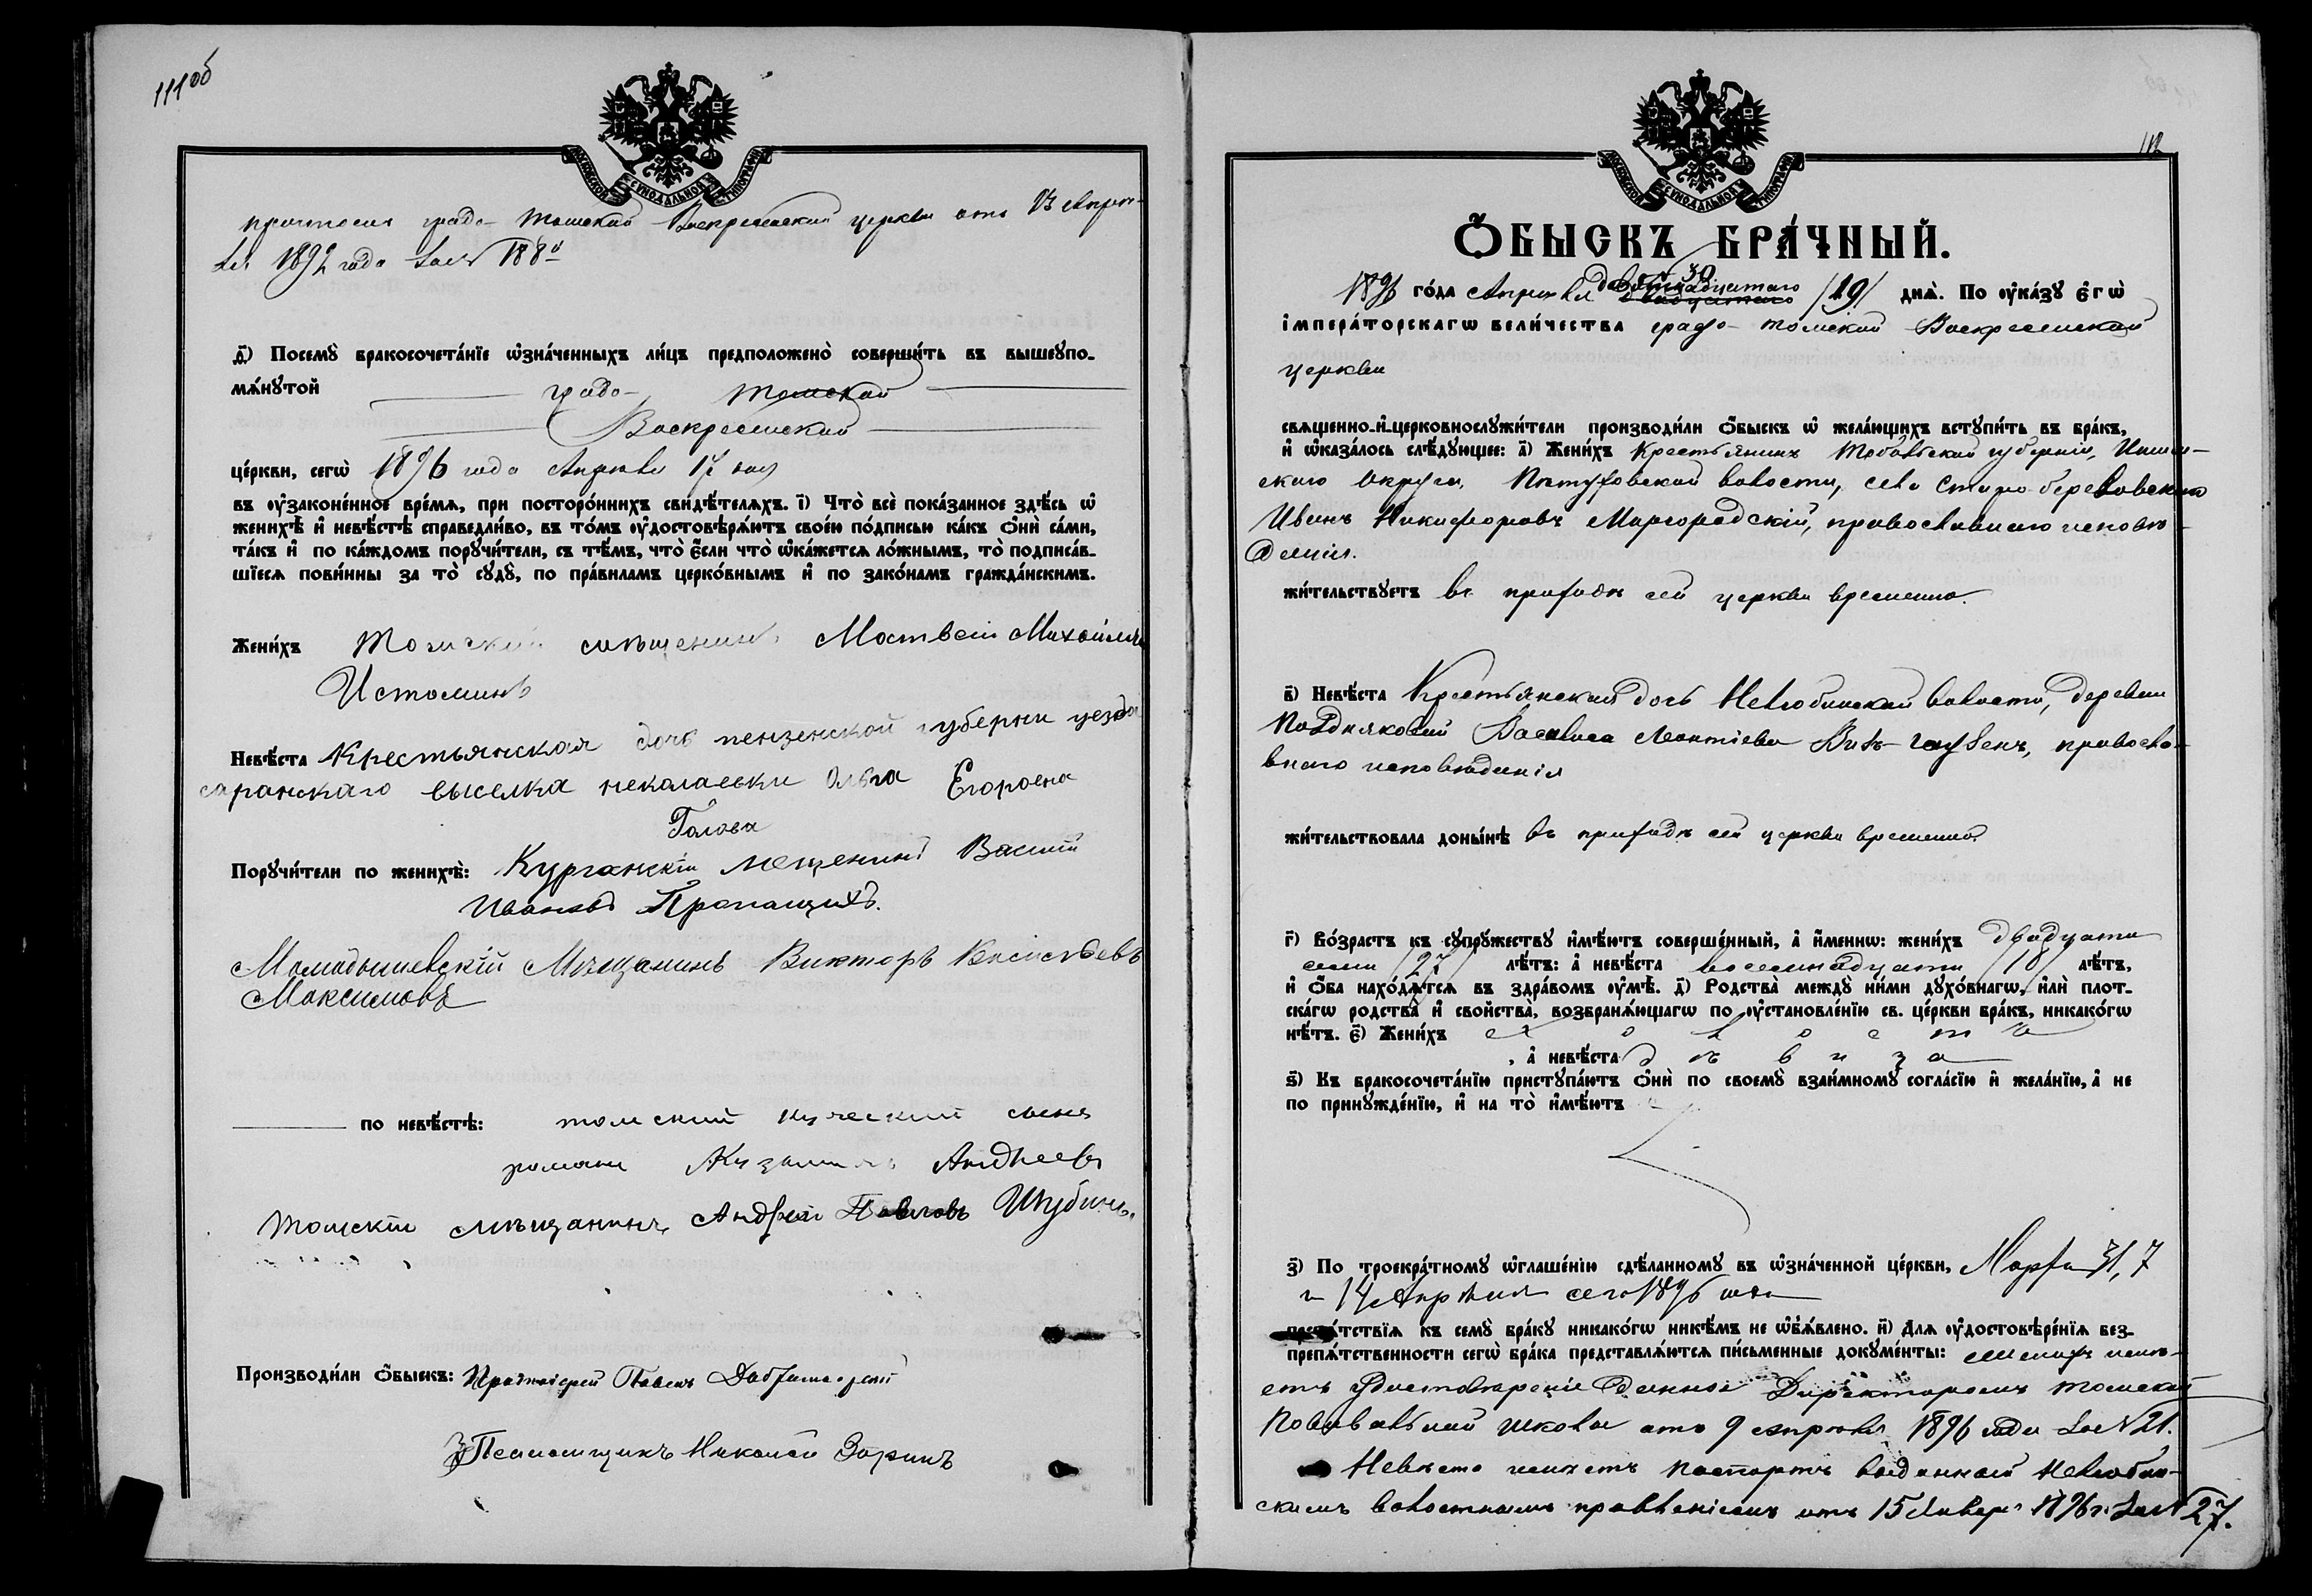 111об
МОСКОВСКОЙ СУНОДАЛЬНОЙ ТИПОГРАФІИ
градо- Томской Воскресенской церкви отъ 13 апрѣ-
ля 1892 года за № 188й
д҃) Посемꙋ̀ бракосочета́нїе ѡ҆зна́ченныхъ ли́цъ предположено̀ соверши́ть въ вышеꙋпо-
мѧ́нꙋтой градо- Томской
Воскресенской
це́ркви, сегѡ̀ 1896 года Апрѣля 17 дня
въ ᲂу҆зако́ненное вре́мѧ, при посторо́ннихъ свидѣ́телѧхъ. і҃) Что̀ всѐ пока́занное здѣ́сь ѡ҆
женихѣ̀ и҆ невѣ́стѣ справедли́во, въ то́мъ ᲂу҆достовѣрѧ́ютъ свое́ю по́дписью ка́къ ѻ҆нѝ са́ми,
та́къ и҆ по ка́ждомъ порꙋчи́тели, съ тѣ́мъ, что̀ є҆́сли что̀ ѡ҆ка́жетсѧ ло́жнымъ, то̀ подписа́в-
шїесѧ пови́нны за то̀ сꙋдꙋ̀, по пра́виламъ церко́внымъ и҆ по зако́намъ гражда́нскимъ.
Жени́хъ Томский мѣщенинъ Матвей Михойлычъ
Истоминъ
Невѣ́ста Крестьянская дочь пензенской губерни уезда
саранскаго выселка неколаевки Ольга Егоровна
Голова
Порꙋчи́тели по женихѣ̀: Курганскій мещенинъ Васили
Ивановъ Пропащихъ.
Мамадышевскій Мещанинъ Викторъ Васильевъ
Максимовъ
по невѣ́стѣ: томский купческий сынъ
Андреевъ
Томскій мѣщанинъ Андрей Павловъ Шубинъ.
Производи́ли ѻ҆́быскъ: Протоіерей Павелъ
Псаломщикъ Николай Зоринъ
112
МОСКОВСКОЙ СУНОДАЛЬНОЙ ТИПОГРАФІИ
Ѻ҆́БЫСКЪ БРА́ЧНЫЙ.
30
1896 го́да Апрѣля девятнадцатаго /19/ днѧ̀. По ᲂу҆ка́зꙋ є҆гѡ̀
і҆мпера́торскагѡ вели́чества градо- Томской Воскресенской
церкви
свѧще́нно-и҆-церковнослꙋжи́тели производи́ли ѻ҆́быскъ ѡ҆ жела́ющихъ встꙋпи́ть въ бра́къ,
и҆ ѡ҆каза́лось слѣ́дꙋющее: а҃) Жени́хъ Крестьянинъ Тобольской губерніи, Ишим-
скаго округа, Пѣтуховской волости, села Старо-березовскаго
Иванъ Никифоровъ Миргородскій, православнаго исповѣ-
данія.
жи́тельствꙋетъ въ приходѣ сей церкви временно.
в҃) Невѣ́ста Крестьянская дочь Нелюбинской волости, деревни
Поздняковой Василиса Леонтіева православ-
наго исповѣданія
жи́тельствовала доны́нѣ въ приходѣ сей церкви временно
г҃) Во́зрастъ къ сꙋпрꙋ́жествꙋ и҆мѣ́ютъ соверше́нный, а҆ и҆́меннѡ: жени́хъ двадцати
семи /27/ лѣ́тъ: а҆ невѣ́ста восемнадцати /18/ лѣ́тъ,
и҆ ѻ҆́ба нахо́дѧтсѧ въ здра́вомъ ᲂу҆мѣ̀. д҃) Родства̀ междꙋ̀ ни́ми дꙋхо́внагѡ, и҆лѝ плот-
ска́гѡ родства̀ и҆ сво́йства, возбранѧ́ющагѡ по ᲂу҆становле́нїю св. це́ркви бра́къ, никако́гѡ
нѣ́тъ. є҃) Жени́хъ холостъ
, а҆ невѣ́ста дѣвица
ѕ҃) Къ бракосочета́нїю пристꙋпа́ютъ ѻ҆нѝ по своемꙋ̀ взаи́мномꙋ согла́сїю и҆ жела́нїю, а҆ не
по принꙋжде́нїю, и҆ на то̀ и҆мѣ́ютъ
з҃) По троекра́тномꙋ ѡ҆глаше́нїю сдѣ́ланномꙋ въ ѡ҆зна́ченной це́ркви, Марта 31, 7
и 14 Апрѣля сего 1896 года
препѧ́тствїѧ къ семꙋ̀ бра́кꙋ никако́гѡ никѣ́мъ не ѡ҆б̾ѧ́влено. и҃) Длѧ ᲂу҆достовѣре́нїѧ без-
препѧ́тственности сегѡ̀ бра́ка представлѧ́ютсѧ пи́сьменные докꙋме́нты: Женихъ имѣ-
етъ удостовѣреніе данное Директоромъ Томской
Повивальной школы отъ 9 апрѣля 1896 года за № 21.
Невѣста имѣетъ паспортъ выданный Нелюбин-
скимъ волостнымъ правленіемъ отъ 15 Января 1896 г. за № 27.